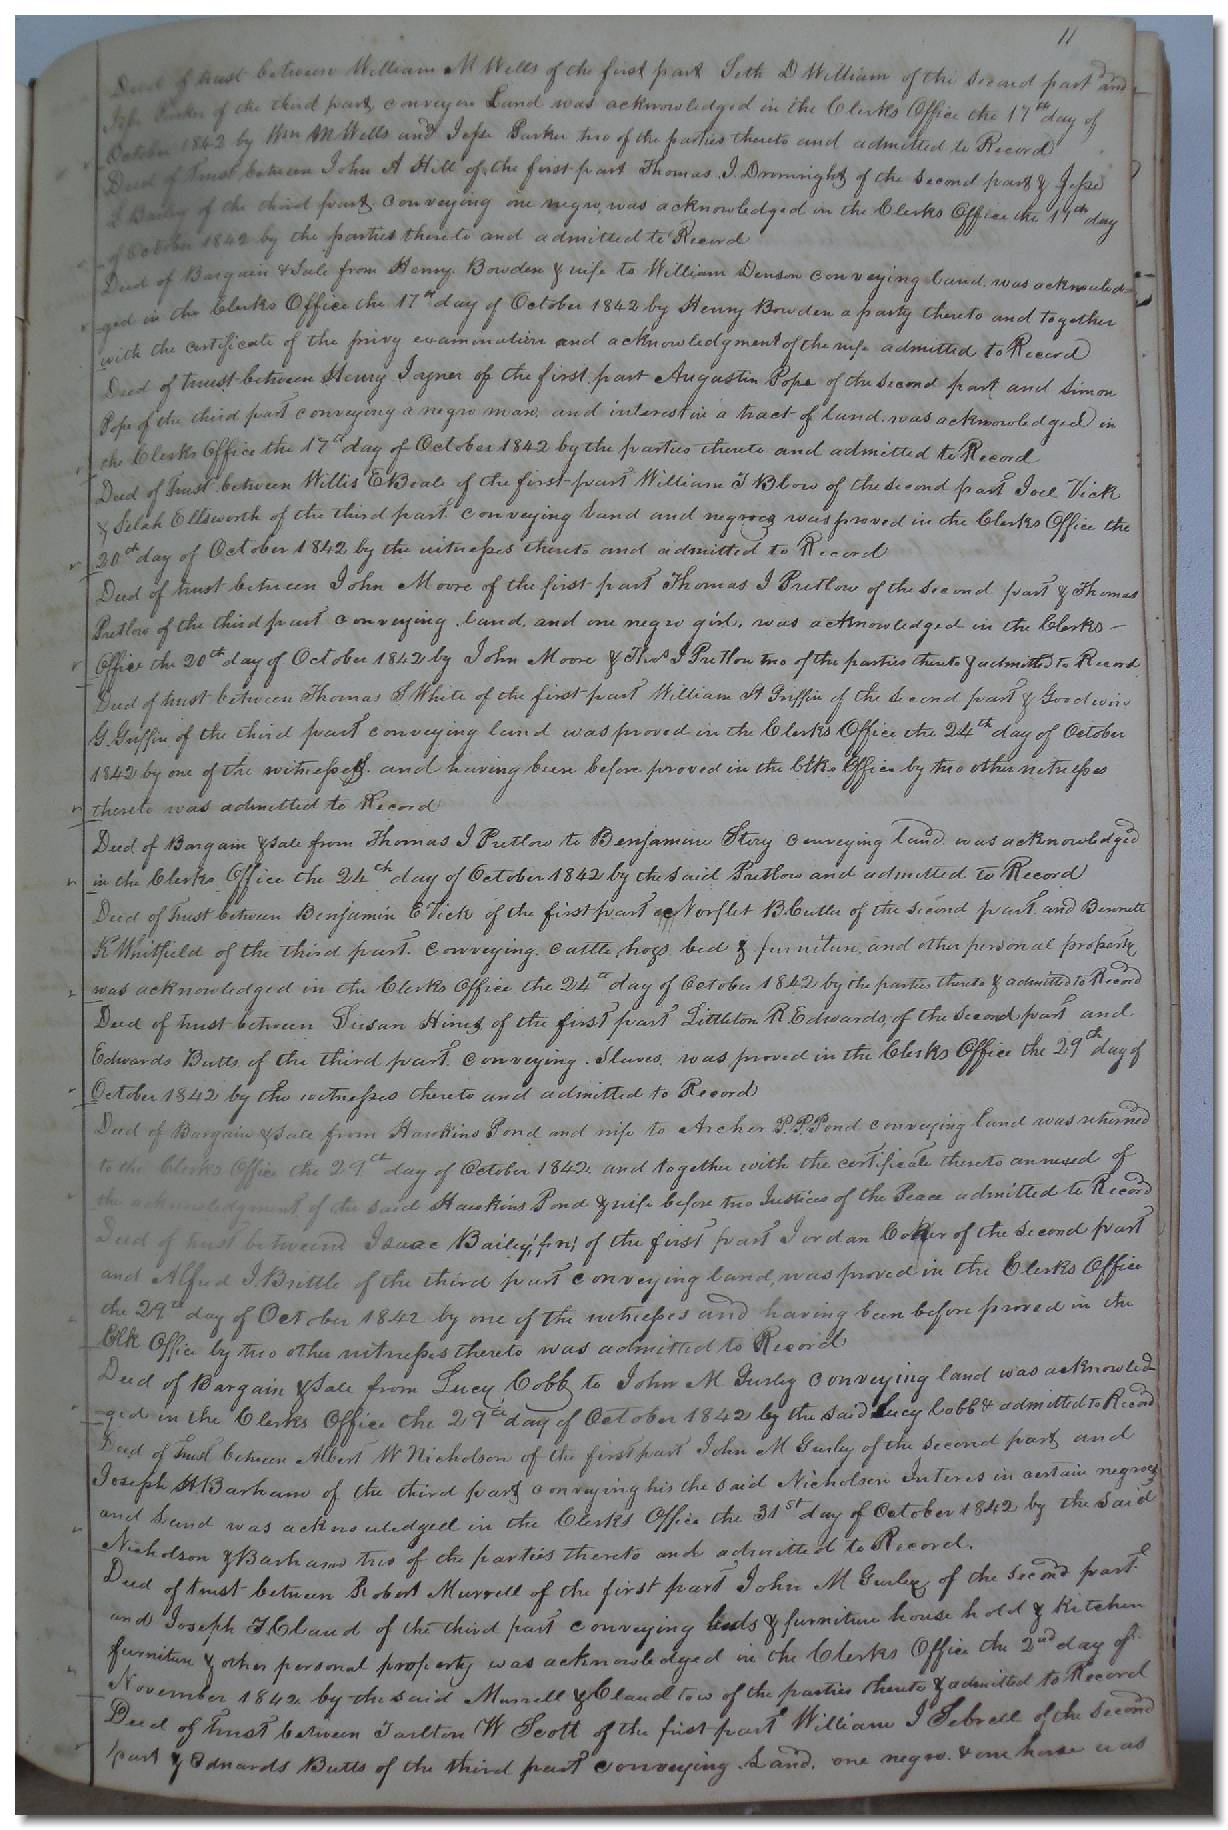 11
Deed of trust between William M Wells of the first part Seth D William of the second part and
Jesse Parker of the third part conveyin Land was acknowledged in the Clerks Office the 17th day of
October 1842 by Wm M Wells and Jesse Parker two of the parties thereto and admitted to Record
Deed of Trust between John A Hill of the first part Thomas J. Drewright of the second part & Jesse
J Bailey of the third part conveying one negro, was acknowledged in the Clerks Office the 17th day
of October 1842 by the parties thereto and admitted to Record
Deed of Bargain & Sale from Henry Bowden & wife to William Denson conveying land. was acknowled-
ged in the Clerks Office the 17th day of October 1842 by Henry Bowden a party thereto and together
with the certificate of the privy examination and acknowledgment of the wife admitted to Record
Deed of trust between Henry Joyner of the first part Augustin Pope of the second part and Simon
Pope of the third part conveying a negro man, and interest in a tract of land. was acknowledged in
the Clerks Office the 17th day of October 1842 by the parties thereto and admitted to Record
Deed of Trust between Willis E Beale of the first part William T Blow of the second part Joel Vick
& Selah Ellsworth of the third part conveying land and negroes was proved in the Clerks Office the
20th day of October 1842 by the witnesses thereto and admitted to Record
Deed of trust between John Moore of the first part Thomas J Pretlow of the second part & Thomas
Pretlow of the third part conveying land, and one negro girl, was acknowledged in the Clerks -
Office the 20th day of October 1842 by John Moore & Thos J Pretlow two of the parties thereto & admitted to Record
Deed of trust between Thomas S White of the first part William H Griffin of the second part & Goodwin
G. Griffin of the third part conveying land was proved in the Clerks Office the 24th day of October
1842 by one of the witnesses. and having been before proved in the Clks Office by two other witnesses
thereto was admitted to Record
Deed of Bargain & Sale from Thomas J Pretlow to Benjamin Story conveying land was acknowledged
in the Clerks Office the 24th day of October 1842 by the said Pretlow and admitted to Record
Deed of Trust between Benjamin E Vick of the first part Norflet B. Cutler of the second part. and Bennett
K Whitfield of the third part. conveying cattle, hogs bed & furniture, and other personal property
was acknowledged in the Clerks Office the 24th day of October 1842 by the parties thereto & admitted to Record
Deed of trust between Susan Hines of the first part Littleton R Edwards, of the second part and
Edwards Butts of the third part. conveying. Slaves. was proved in the Clerks Office the 29th day of
October 1842 by the witnesses thereto and admitted to Record
Deed of Bargain & Sale from Hawkins Pond and wife to Archer P.P. Pond conveying land was returned
to the Clerks Office the 29th day of October 1842. and together with the certificate thereto annexed of
the acknowledgment of the said Hawkins Pond & wife before two Justices of the Peace admitted to Record
Deed of trust between Isaac Bailey of the first part Jordan Coker of the second part
and Alfred J. Brittle of the third part conveying land, was proved in the Clerks Office
the 29th day of October 1842 by one of the witnesses and having been before proved in the
Clk Office by two other witnesses thereto was admitted to Record
Deed of Bargain & Sale from Lucy Cobb to John M Gurley conveying land was acknowled-
ged in the Clerks Office the 29th day of October 1842 by the said Lucy Cobb & admitted to Record
Deed of Trust between Albert W Nicholson of the first part John M Gurley of the second part and
Joseph H. Barham of the third part conveying his the said Nicholson Interes in certain negroes
and Land was acknowledged in the Clerks Office the 31st day of October 1842 by the said
Nicholson & Barham two of the parties thereto and admitted to Record.
Deed of trust between Robert Murrell of the first part John M Gurley of the second part
and Joseph T. Claud of the third part conveying beds & furniture house hold & kitchen
furniture & other personal property was acknowledged in the Clerks Office the 2nd day of
November 1842 by the said Murrell & Claud tow of the parties thereto & admitted to Record
Deed of Trust between Tarlton W Scott of the first part William J Sebrell of the second
part & Edwards Butts of the third part conveying Land, one negro. & one horse was